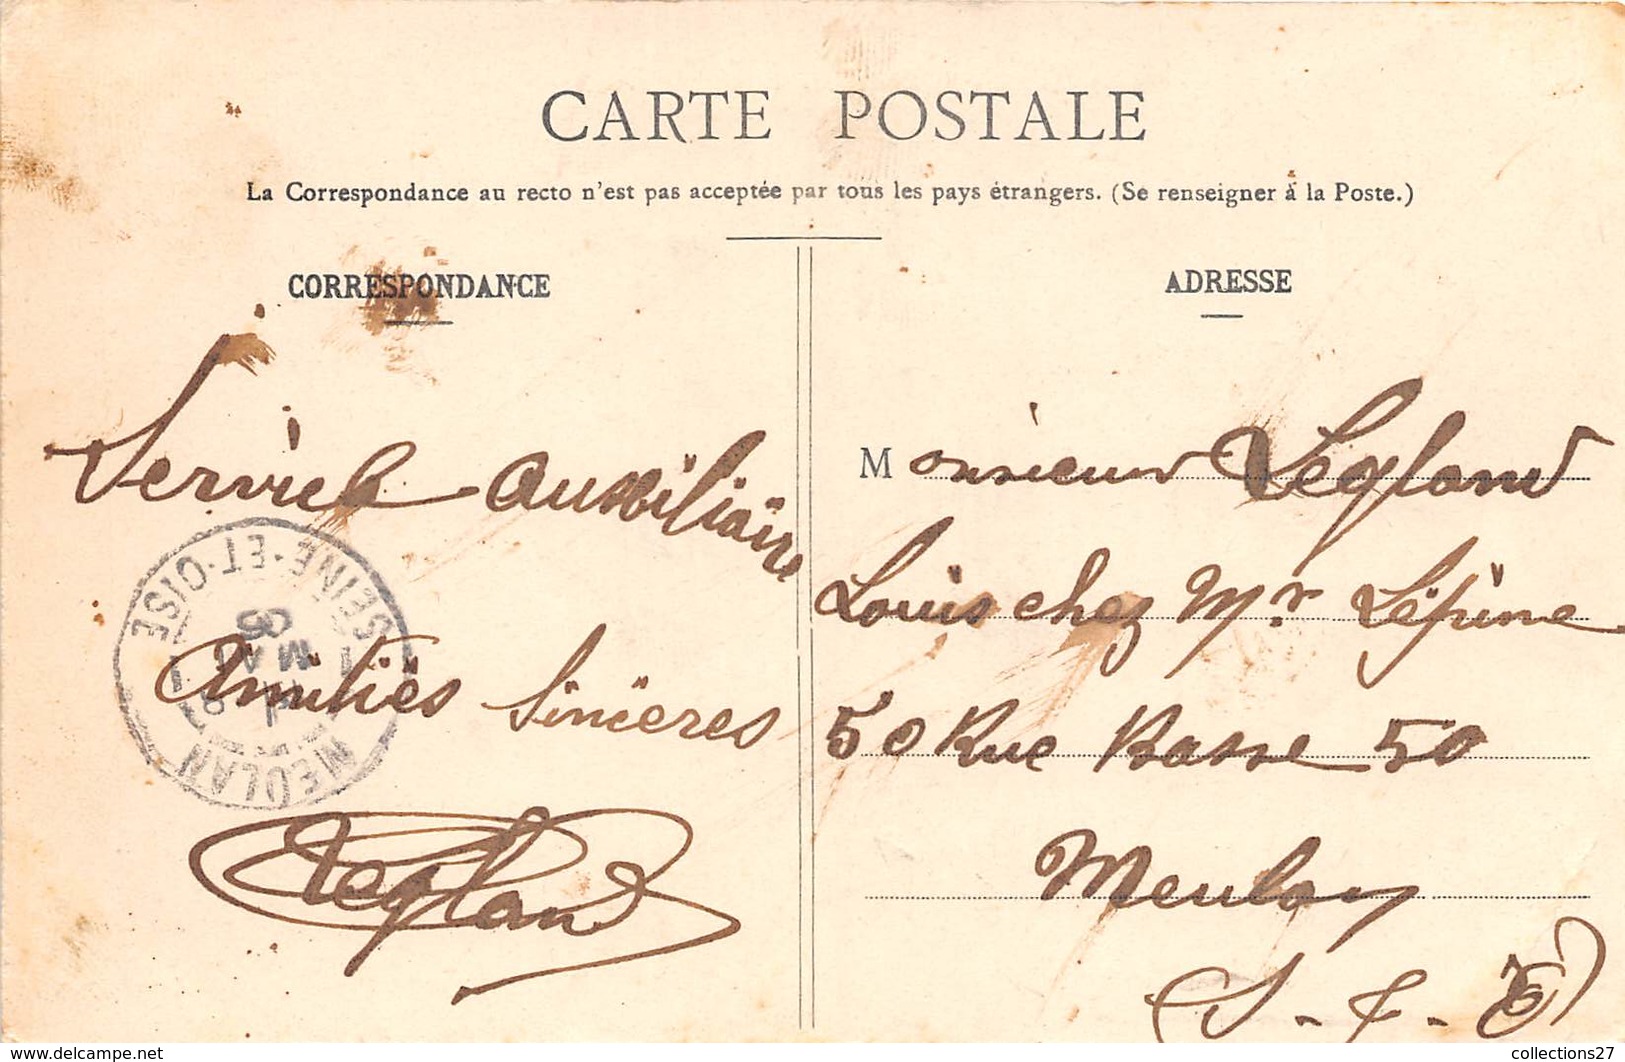 CARTE POSTALE
La Correspondance au recto n'est pas acceptée par tous les pays étrangers. (Se renseigner à la Poste.)
CORRESPONDANCE
Service auxiliaire
Amitiés Sincères
Legland
MEULAN
SEINE-ET-OISE
ADRESSE
Monsieur Legland
Louis chez Mr Lépine
50 Rue Basse 50
Meulan
(S-&-O)
collections27
www.delcampe.net